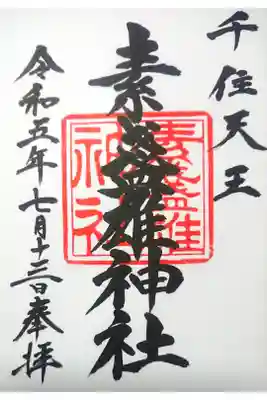 千住天王
素盞雄神社
令和五年七月十三日奉拝
素盞雄
神社